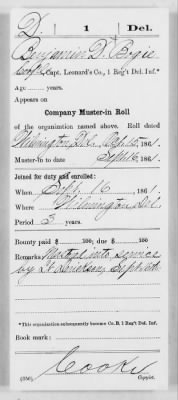 D 1 Del.
Benjamin D. Bogie
Corp'l, Capt. Leonard's Co., 1 Reg't Del. Inf.*
Age ...... years.
Appears on
Company Muster-in Roll
of the organization named above. Roll dated
Wilmington Del. Sept 16, 1861.
Muster-in to date Sept 16, 1861.
Joined for duty and enrolled:
When Sept. 16, 1861.
Where Wilmington Del.
Period 3 years.
Bounty paid $ 100; due $ 100
Remarks Mustered into service
by Lt. Sept. 16th
*This organization subsequently became Co. B, 1 Reg't Del. Inf.
Book mark:
Cooke
(356) Copyist.